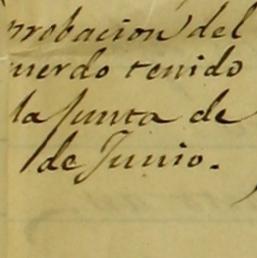 probacion del
uerdo tenido
la Junta de
de Junio.